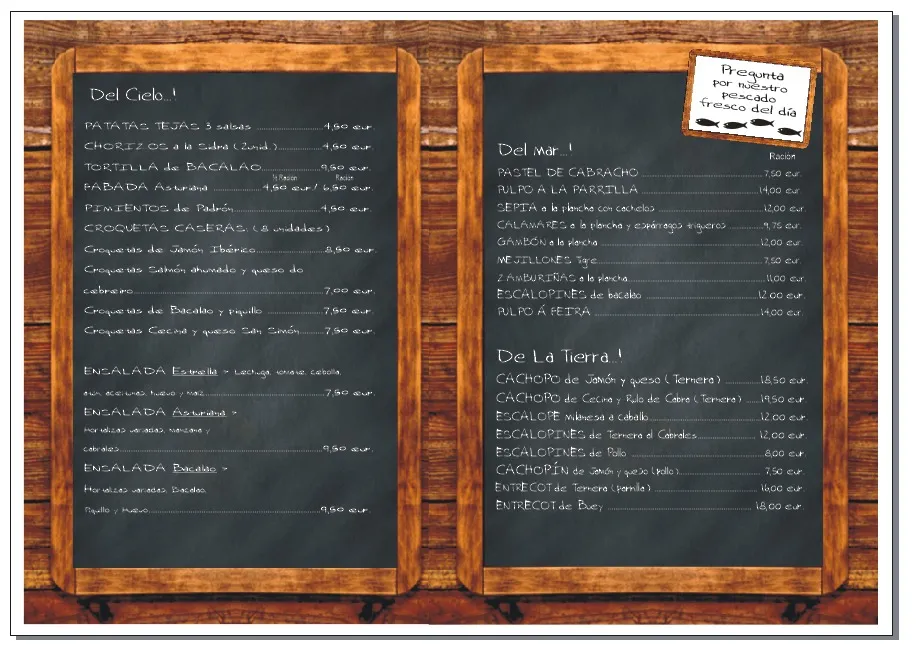 Del Cielo...!
PATATAS TEJAS 3 salsas ........................4,50 eur.
CHORIZOS a la Sidra (2unid.)................4,50 eur.
TORTILLA de BACALAO....................9,50 eur.
½ Ración Ración
FABADA Asturiana ................4,50 eur./ 6,50 eur.
PIMIENTOS de Padrón..............................4,50 eur.
CROQUETAS CASERAS: (8 unidades)
Croquetas de Jamón Ibérico........................8,50 eur.
Croquetas Salmón ahumado y queso de
cebreiro....................................................................7,00 eur.
Croquetas de Bacalao y piquillo ....................7,50 eur.
Croquetas Cecina y queso San Simón.........7,50 eur.
ENSALADA Estrella > Lechuga, tomate, cebolla,
atún, aceitunas, huevo y maíz...........................................7,50 eur.
ENSALADA Asturiana >
Hortalizas variadas, manzana y
cabrales.........................................................................9,50 eur.
ENSALADA Bacalao >
Hortalizas variadas, Bacalao,
Piquillo y Huevo..............................................................9,50 eur.
Pregunta
por nuestro
pescado
fresco del día
Del Mar...!
Ración
PASTEL DE CABRACHO ...........................................7,50 eur.
PULPO A LA PARRILLA ...........................................14,00 eur.
SEPIA a la plancha con cachelos ......................................12,00 eur.
CALAMARES a la plancha y espárragos trigueros ..............9,75 eur.
GAMBÓN a la plancha ......................................................12,00 eur.
MEJILLONES Tigre..........................................................7,50 eur.
ZAMBURIÑAS a la plancha..............................................11,00 eur.
ESCALOPINES de bacalao .........................................12,00 eur.
PULPO Á FEIRA ........................................................14,00 eur.
De La Tierra...!
CACHOPO de Jamón y queso (Ternera) .............18,50 eur.
CACHOPO de Cecina y Rulo de Cabra (Ternera) .....19,50 eur.
ESCALOPE Milanesa a caballo......................................12,00 eur.
ESCALOPINES de Ternera al Cabrales..............................12,00 eur
ESCALOPINES de Pollo ................................................8,00 eur
CACHOPÍN de Jamón y queso (pollo)..............................7,50 eur.
ENTRECOT de Ternera (parrilla) ....................................16,00 eur.
ENTRECOT de Buey ..................................................... 18,00 eur.